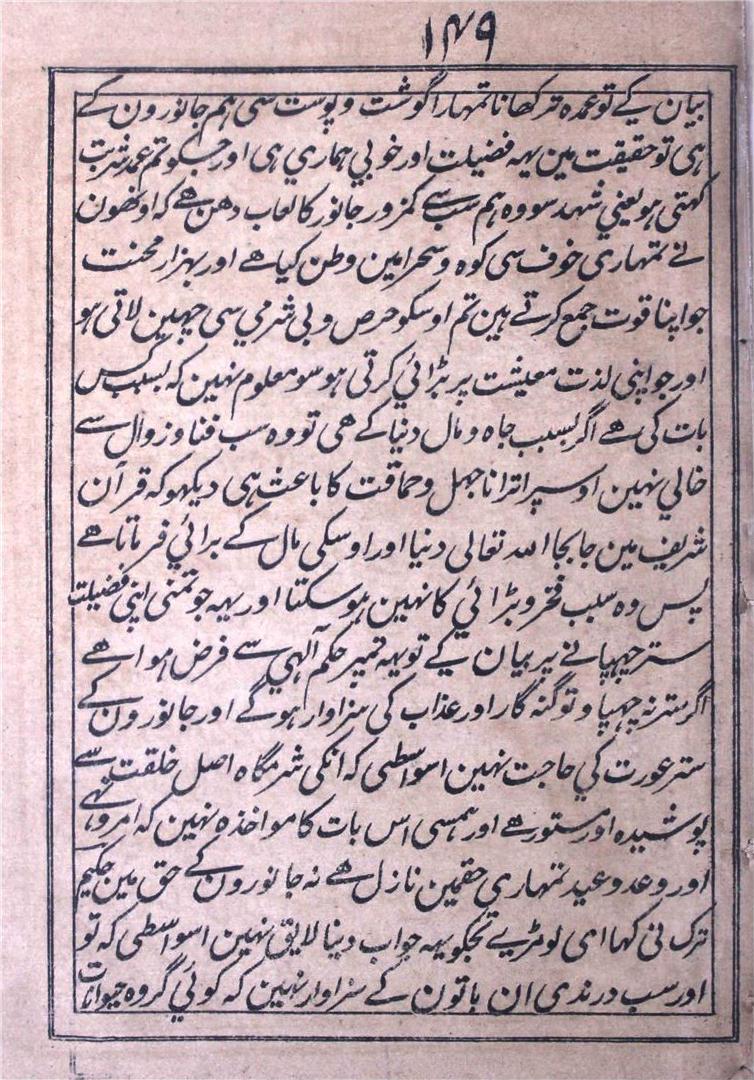 ١٤٩
بیان کے تو عمده تر کھانا تمهارا گوشت و پوست سی هم جانورون کے
هی تو حقیقت مین یهه فضیلت اور خوبي هماري هی اور جسکو تم عمده شربت
کهتی هو یعني شهد سو وه هم سب سے کمزور جانور کا لعاب دهن هے که اونھون
نے تمهاری خوف سی کوه و صحرا مین وطن کیا هے اور بهزار محنت
جو اپنا قوت جمع کرتے هین تم اوسکو حرص و بی شرمي سی چهین لاتی هو
اور جو اپنی لذت معیشت پر بڑائي کرتی هو سو معلوم نهین که بسبب کس
بات کی هے اگر بسبب جاه و مال دنیا کے هی تو وه سب فنا و زوال سے
خالي نهین اوسپر اترانا جهل و حماقت کا باعث هی دیکهو که قرآن
شریف مین جابجا الله تعالی دنیا اور اوسکی مال کے برائي فرماتا هے
پس وه سبب فخر و بڑائي کا نهین هوسکتا اور یهه جو تمنی اپنی فضیلت
ستر چهپانے پر بیان کے تو یهه تمپر حکم آلهي سے فرض هوا هے
اگر ستر نه چهپاوتو گنه گار اور عذاب کی سزاوار هوگے اور جانورون کے
ستر عورت کي حاجت نهین اسواسطی که انکی شرمگاه اصل خلقت سے
پوشیده اور مستور هے اور همسی اس بات کا مواخذه نهین که امر و نهي
اور وعد و عید تمهاري حقمین نازل هے نه جانورون کے حق مین حکیم
ترک نی کها ای لومڑے تجکو یهه جواب دینا لایق نهین اسواسطی که تو
اور سب درندی ان باتون کے سزاوار نهین که کوئي گروه حیوانات